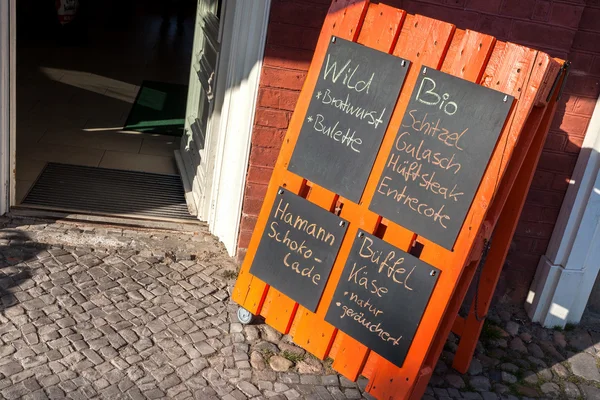 Wild
*Bratwurst
*Bulette
Bio
Schitzel
Gulasch
Hüftsteak
Entrecote
Hamann
Schoko-
lade
Büffel
Käse
*natur
*geräuchert